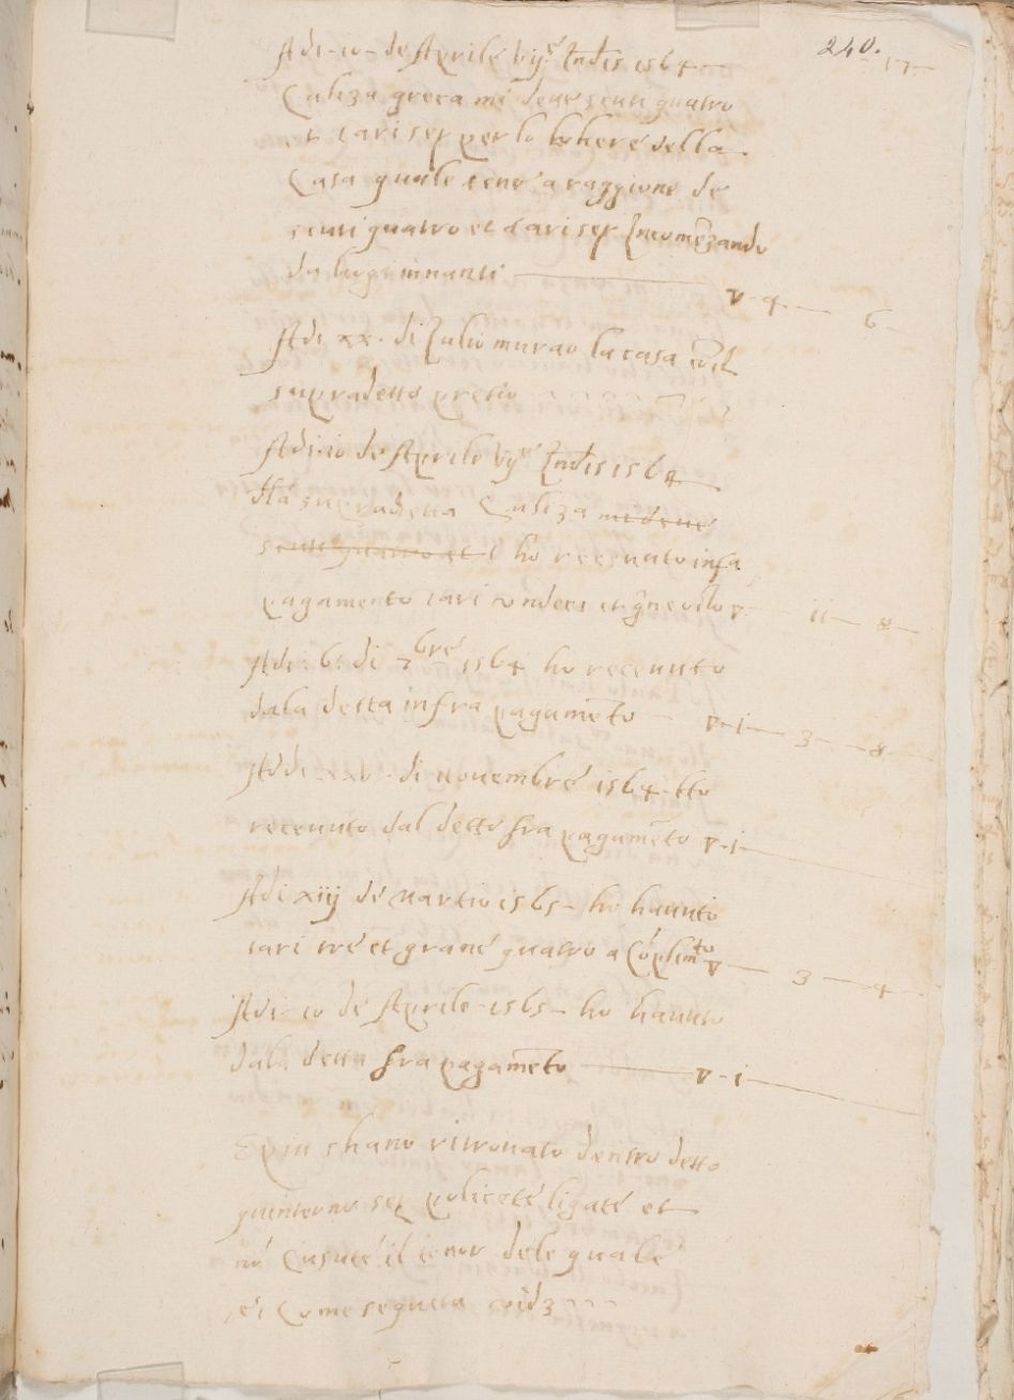 240.
17
Adi -10- de Aprile vij.e Indis 1564
Caliza greca me deve scuti quatro
et tari sej per lo lohere della
Casa quale tene a raggione de
scuti quatro et tari sej Incomēzando
da hogi innanti v. 4. 6
Adi xx. di Julio murao la casa
supradetto pretio
Adi 10 de Aprile vij.e Indis 1564
Ha supradetta Caliza me deve
scuti quatro et t ho recevuto infa
pagamento tari ondeci et gne otto v 11 8
Adi 6: di 7bre 1564 ho recevuto
dala detta infra pagamēto v. i 3 8
Adi xxv. di novembre 1564
recevuto dal detto fra pagamēto v. i
Adi xiij de martio 1565 ho havuto
tari tre et grane quatro a Cōplimto v 3 4
Adi 10 de Aprile 1565 ho havuto
dala detta fra pagamēto v. i
E piu shano ritrovato dentro detto
quinterno sej policete ligate et
nō Cusute il tenor dele quale
e Come seguita